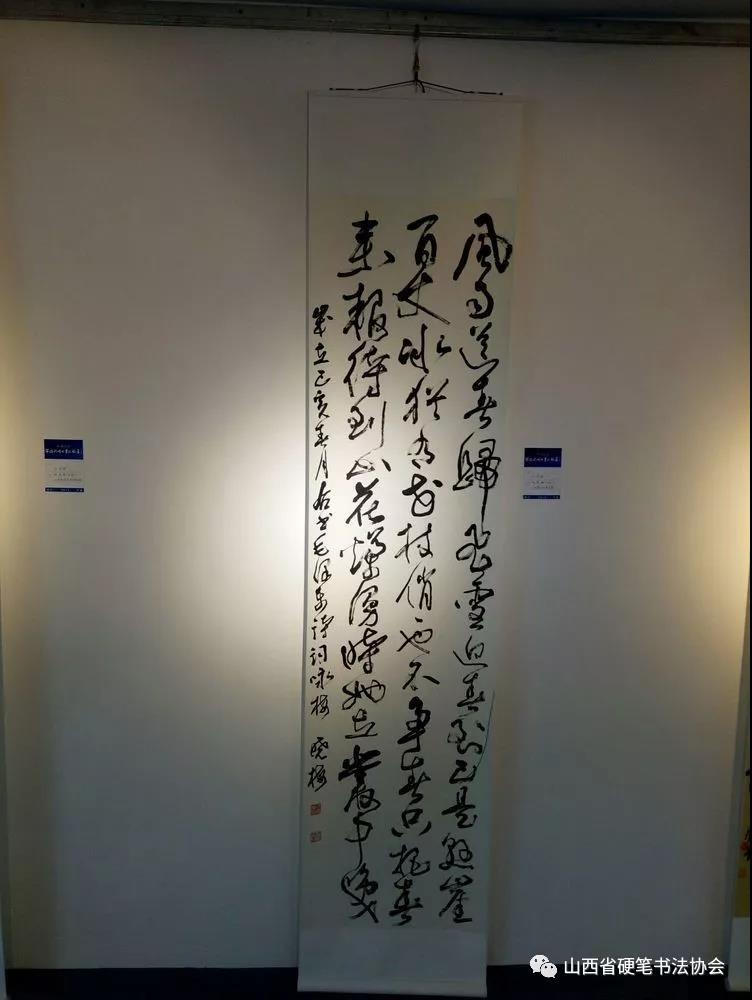 風雨送春歸飛雪迎春到已是懸崖
百丈冰猶有花枝俏也不爭春只把春
來報待到山花爛漫時她在叢中笑
歲在己亥春月右书毛澤东詩詞咏梅 晓梅
山西省硬笔书法协会